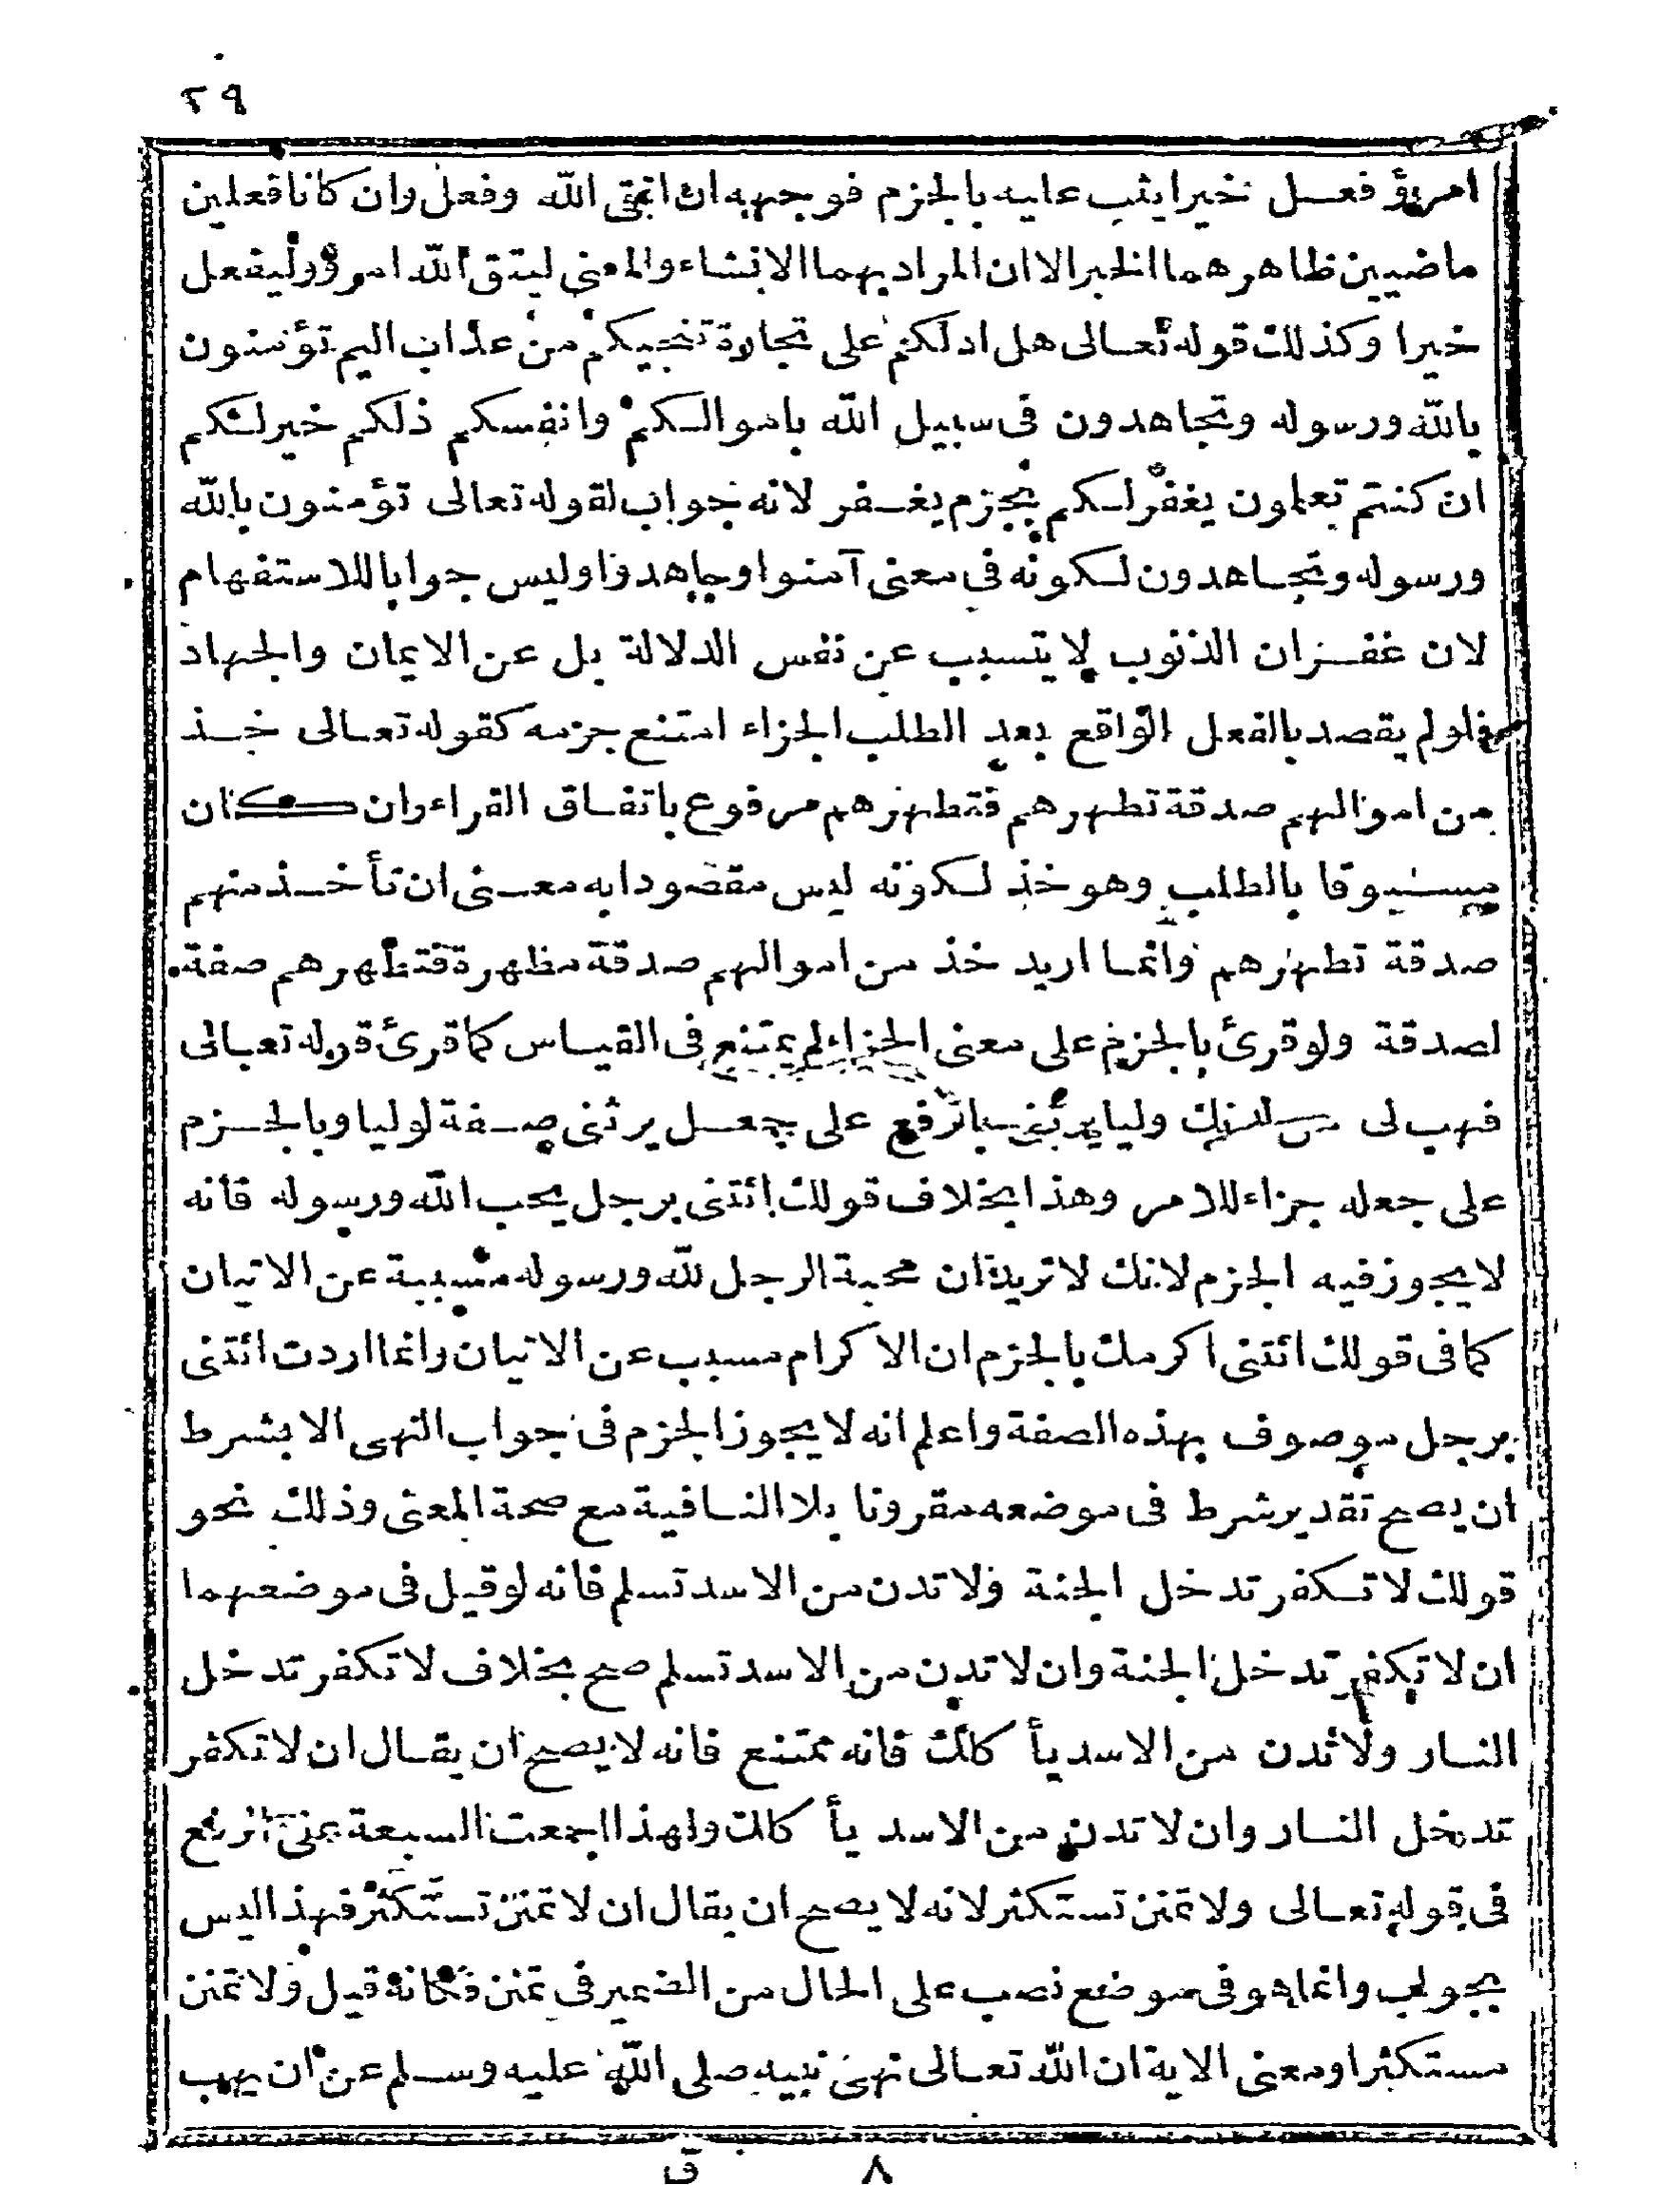 ٢٩
امرؤ فعل خيرا يثب عليه بالجزم فوجهه ان اتقى الله وفعل وان كانا فعلين
ماضيين ظاهرهما الخبر الا ان المراد بهما الانشاء والمعنى ليتق الله امرؤ وليفعل
خيرا وكذلك قوله تعالى هل ادلكم على تجارة تنجيكم من عذاب اليم تؤمنون
بالله ورسوله وتجاهدون فى سبيل الله باموالكم وانفسكم ذلكم خير لكم
ان كنتم تعلمون يغفر لكم بجزم يغفر لانه جواب لقوله تعالى تؤمنون بالله
ورسوله وتجاهدون لكونه فى معنى آمنوا وجاهدوا وليس جوابا للاستفهام
لان غفران الذنوب لا يتسبب عن نفس الدلالة بل عن الايمان والجهاد
فلو لم يقصد بالفعل الواقع بعد الطلب الجزاء امتنع جزمه كقوله تعالى خذ
من اموالهم صدقة تطهرهم فتطهرهم مرفوع باتفاق القراء وان كان
مسبوقا بالطلب وهو خذ لكونه ليس مقصودا به معنى ان تأخذ منهم
صدقة تطهرهم وانما اريد خذ من اموالهم صدقة مطهرة فتطهرهم صفة
لصدقة ولو قرئ بالجزم على معنى الجزاء لم يمتنع فى القياس كما قرئ قوله تعالى
فهب لى من لدنك وليا يرثنى بالرفع على جعل يرثنى صفة لوليا وبالجزم
على جعله جزاء للامر وهذا بخلاف قولك ائتنى برجل يحب الله ورسوله فانه
لا يجوز فيه الجزم لانك لا تريد ان محبة الرجل لله ورسوله مسببة عن الاتيان
كما فى قولك ائتنى اكرمك بالجزم ان الاكرام مسبب عن الاتيان وانما اردت ائتنى
برجل موصوف بهذه الصفة واعلم انه لا يجوز الجزم فى جواب النهى الا بشرط
ان يصح تقدير شرط فى موضعه مقرونا بلا النافية مع صحة المعنى وذلك نحو
قولك لا تكفر تدخل الجنة ولا تدن من الاسد تسلم فانه لو قيل فى موضعهما
ان لا تكفر تدخل الجنة وان لا تدن من الاسد تسلم صح بخلاف لا تكفر تدخل
النار ولا تدن من الاسد يأكلك فانه ممتنع فانه لا يصح ان يقال ان لا تكفر
تدخل النار وان لا تدن من الاسد يأكلك ولهذا اجمعت السبعة على الرفع
فى قوله تعالى ولا تمنن تستكثر لانه لا يصح ان يقال ان لا تمنن تستكثر فهذا ليس
بجواب وانما هو فى موضع نصب على الحال من الضمير فى تمنن فكانه قيل ولا تمنن
مستكثرا ومعنى الاية ان الله تعالى نهى نبيه صلى الله عليه وسلم عن ان يهب
٨ ق